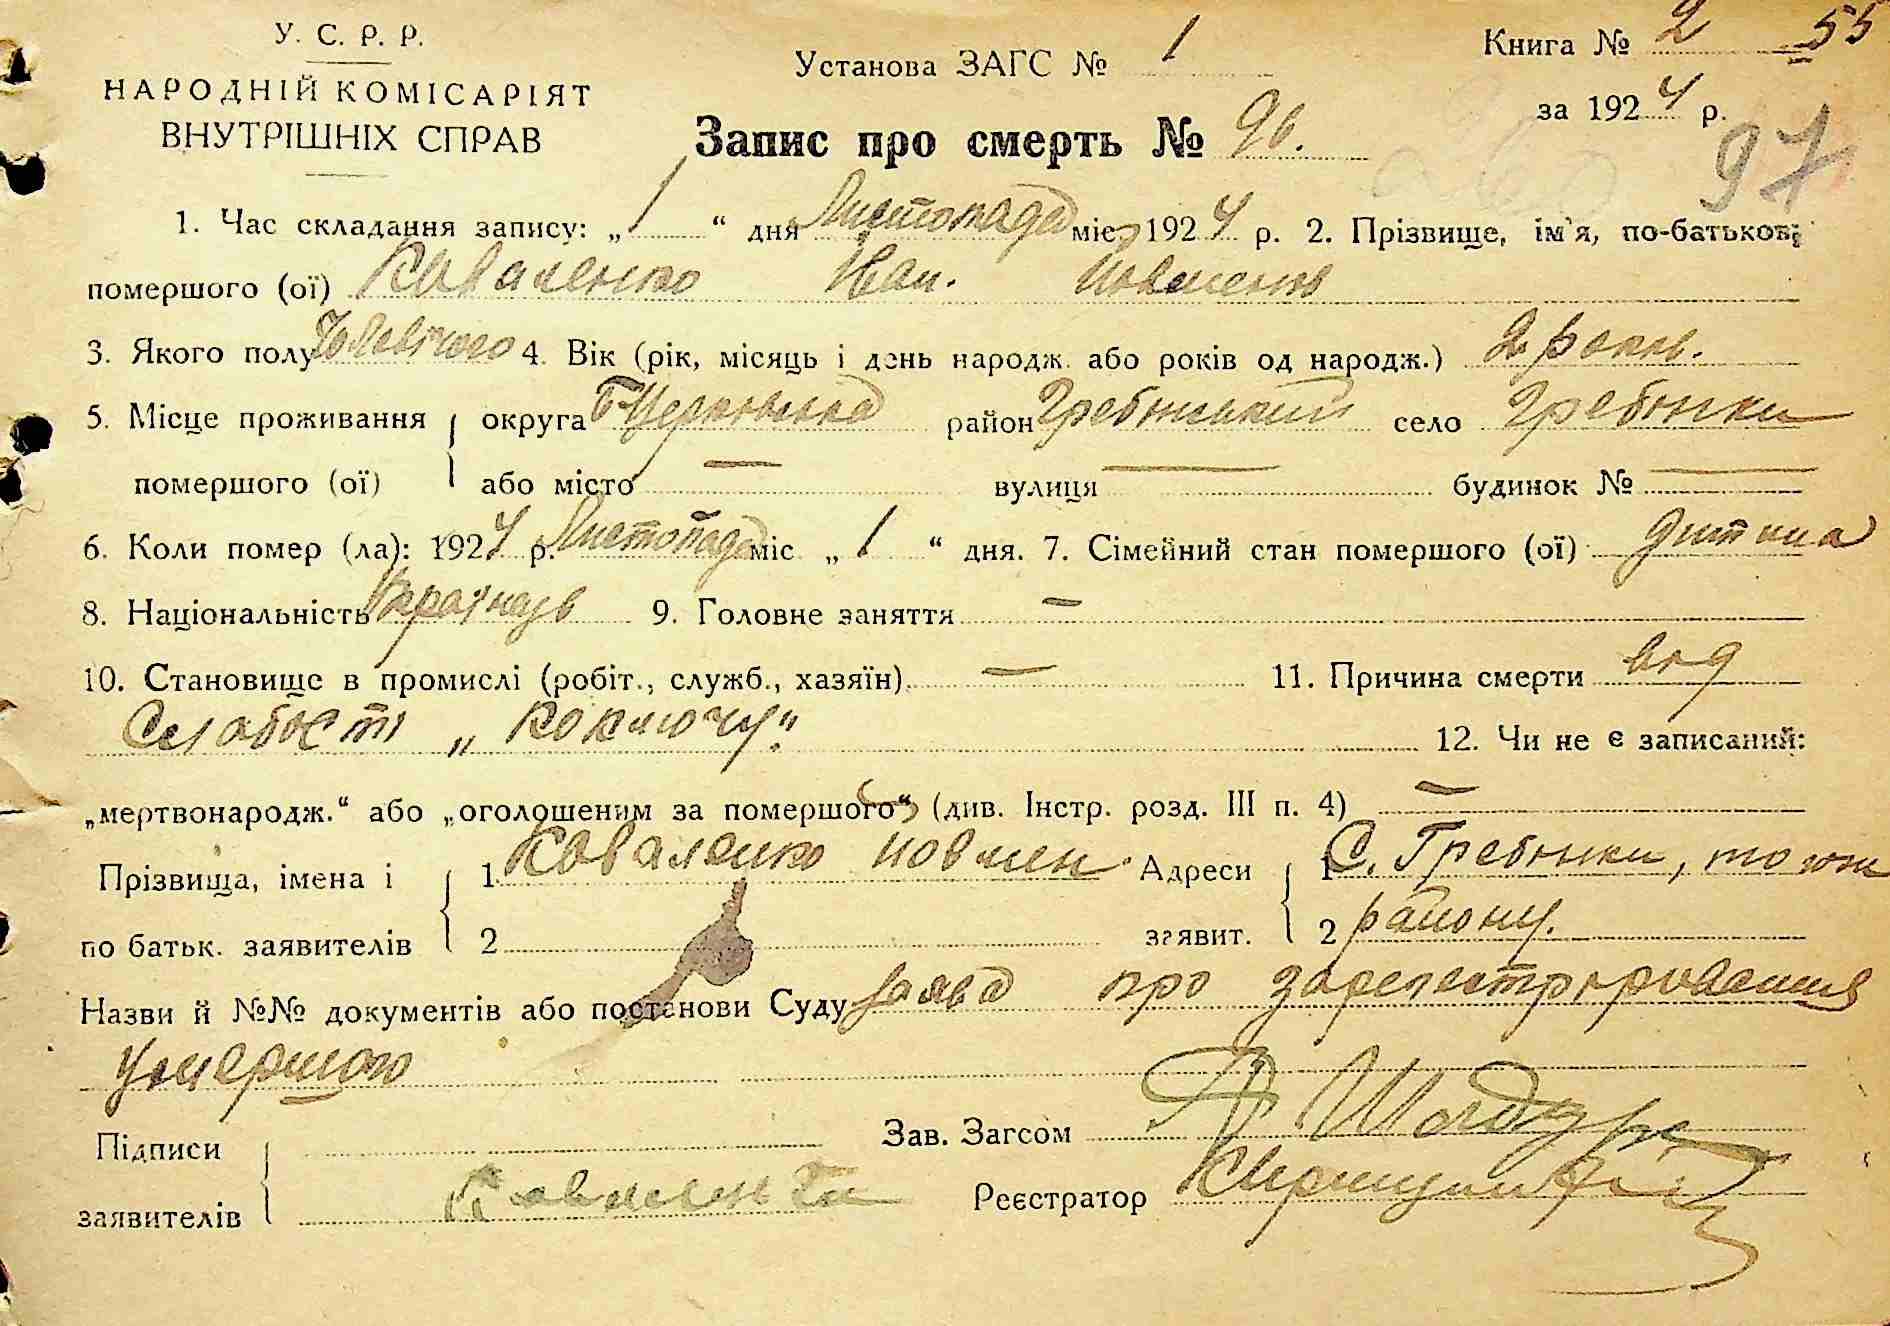 У. С. Р. Р.
НАРОДНІЙ КОМІСАРІЯТ
ВНУТРІШНІХ СПРАВ
Установа ЗАГС № 1
Книга № 2 55
за 1924 р.
97
Запис про смерть № 96.
1. Час складання запису: „ 1 “ дня Листопада міс 1924 р. 2. Прізвище, ім'я, по-батькові
помершого (ої) Коваленко Іван.
3. Якого полу Чоловічого 4. Вік (рік, місяць і день народж. або років од народж.) 2 роки.
5. Місце проживання помершого (ої) округа Б-Церковська район Гребінський село Гребінки
або місто — вулиця — будинок № —
6. Коли помер (ла): 1924 р. Листопада міс „ 1 “ дня. 7. Сімейний стан помершого (ої) дитина
8. Національність Українець 9. Головне заняття —
10. Становище в промислі (робіт., служб., хазяїн). — 11. Причина смерти від
Слабості „коключу".
12. Чи не є записаний:
„мертвонародж.“ або „оголошеним за помершого“ (див. Інстр. розд. III п. 4) —
Прізвища, імена і по батьк. заявителів 1 Коваленко Адреси заявит. 1 С. Гребінки, того ж
2 2 району.
Назви й №№ документів або постанови Суду заява про
умершого
Підписи заявителів
Зав. Загсом
Реєстратор